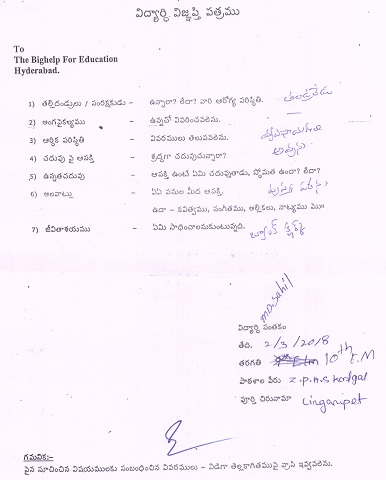 విద్యార్థి విజ్ఞప్తి పత్రము
To
The Bighelp For Education
Hyderabad.
1) తల్లిదండ్రులు / సంరక్షకుడు – ఉన్నారా? లేదా? వారి ఆరోగ్య పరిస్థితి.
2) అంగవైకల్యము – ఉన్నచో వివరించవలెను.
3) ఆర్థిక పరిస్థితి – వివరములు తెలుపవలెను.
4) చదువు పై ఆసక్తి – శ్రద్ధగా చదువుచున్నారా?
5) ఉన్నతచదువు – ఆసక్తి ఉంటే ఏమి చదువుతాడు, స్తోమత ఉందా? లేదా?
6) అలవాట్లు – ఏఏ పనుల మీద ఆసక్తి.
ఉదా – కవిత్వము, సంగీతము, అల్లికలు, నాట్యము మొ॥
7) జీవితాశయము – ఏమి సాధించాలనుకుంటున్నది.
MD.Sahil
విద్యార్థి సంతకం
తేది. 2/3/2018
తరగతి 10th E.M
పాఠశాల పేరు Z.P.H.S
పూర్తి చిరునామా Lingampet
గమనిక:–
పైన సూచించిన విషయములకు సంబంధించిన వివరములు – విడిగా తెల్లకాగితముపై వ్రాసి ఇవ్వవలెను.